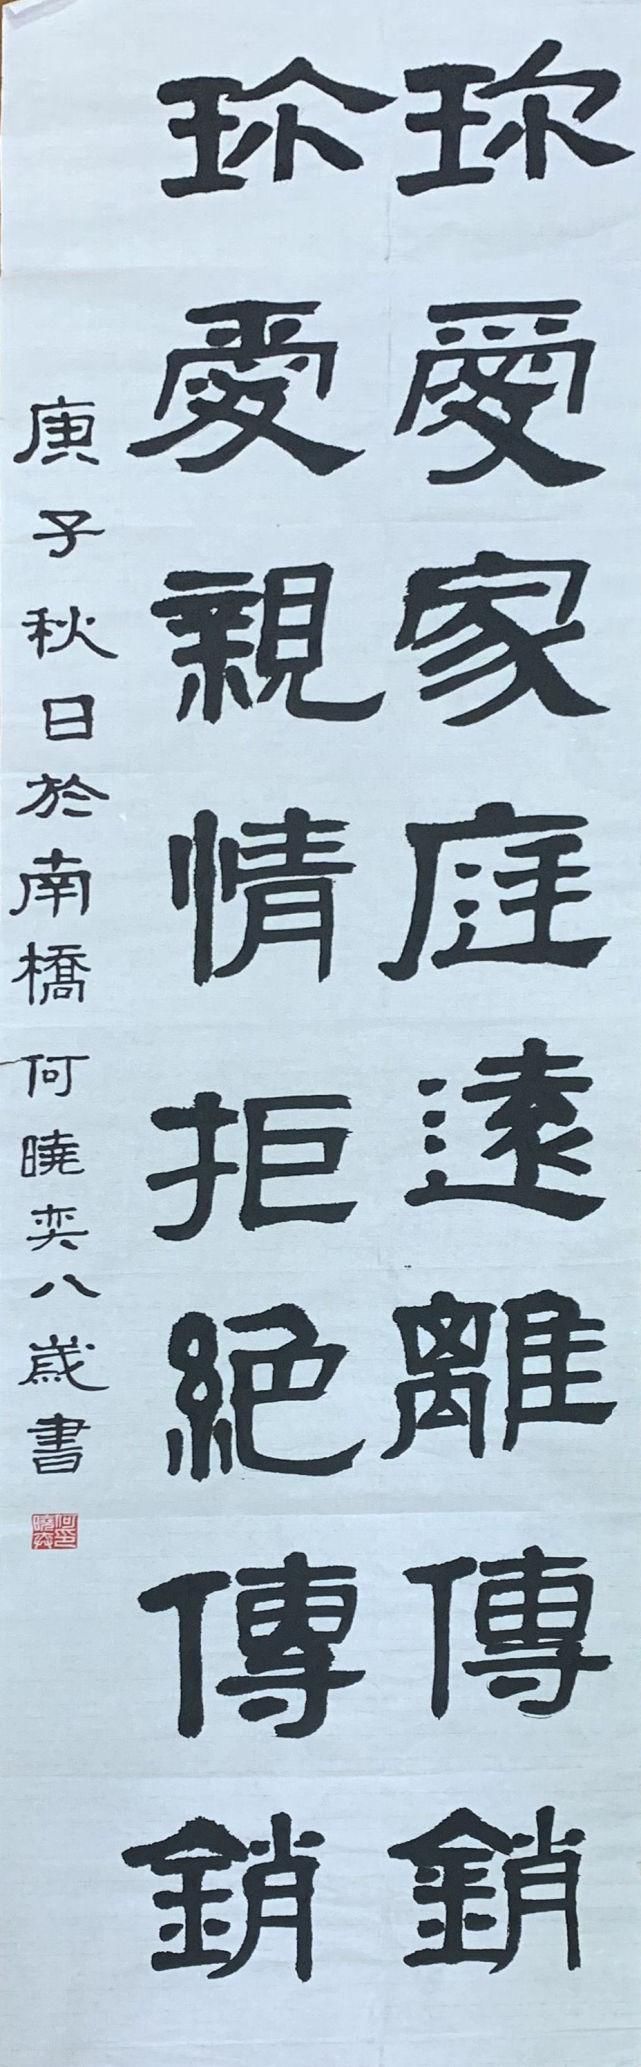 珎愛家庭遠離傳銷
珎愛親情拒絕傳銷
庚子秋日於南橋何曉奕八歲書
何曉奕印